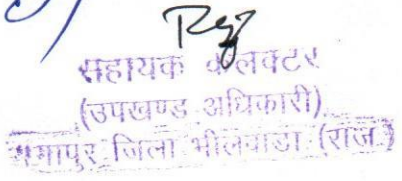 सहायक कलक्टर
(उपखण्ड अधिकारी)
जिला भीलवाडा (राज.)